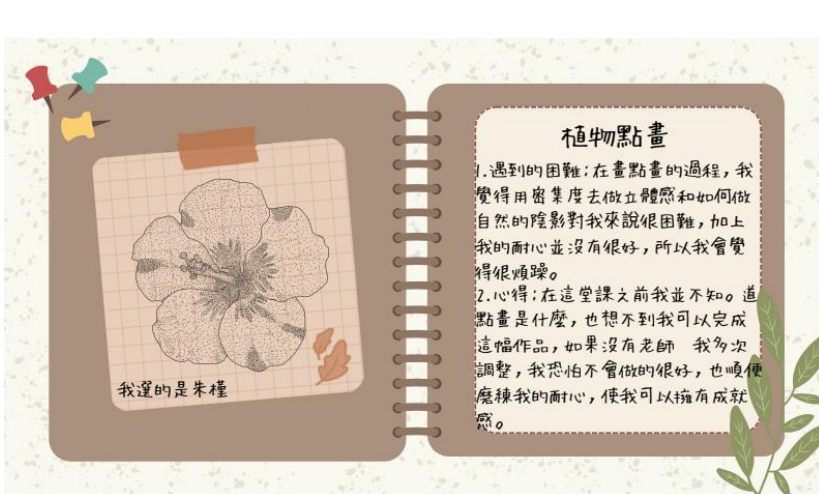 我選的是朱槿
植物點畫
1.遇到的困難;在畫點畫的過程,我
覺得用密集度去做立體感和如何做
自然的陰影對我來說很困難,加上
我的耐心並沒有很好,所以我會覺
得很煩躁。
2.心得;在這堂課之前我並不知。道
點畫是什麼,也想不到我可以完成
這幅作品,如果沒有老師 我多次
調整,我恐怕不會做的很好,也順便
磨練我的耐心,使我可以擁有成就
感。